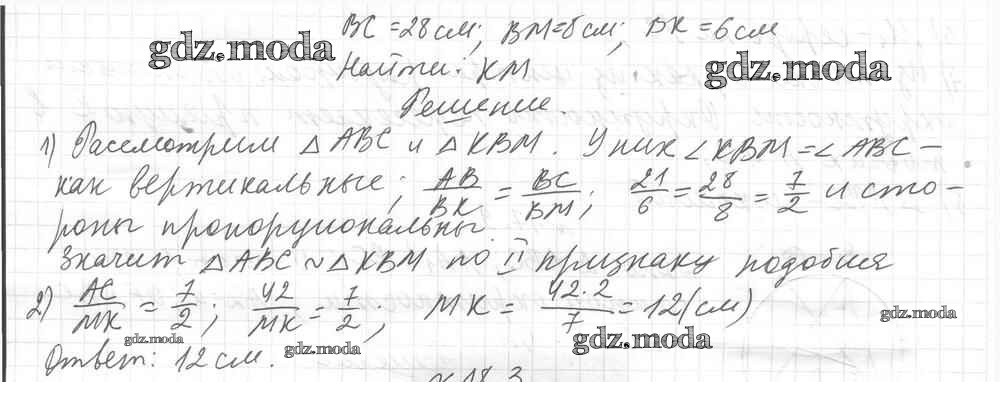 BC = 28 см; BM = 8 см; BK = 6 см
gdz.moda
Найти: KM
gdz.moda
Решение
1) Рассмотрим △ ABC и △ KBM. У них ∠ KBM = ∠ ABC –
как вертикальные; AB/BK = BC/BM; 21/6 = 28/8 = 7/2 и сто-
роны пропорциональны.
Значит △ ABC ~ △ KBM по II признаку подобия
2) AC/MK = 7/2; 42/MK = 7/2, MK = 42·2/7 = 12 (см)
gdz.moda
gdz.moda
gdz.moda
gdz.moda
Ответ: 12 см.